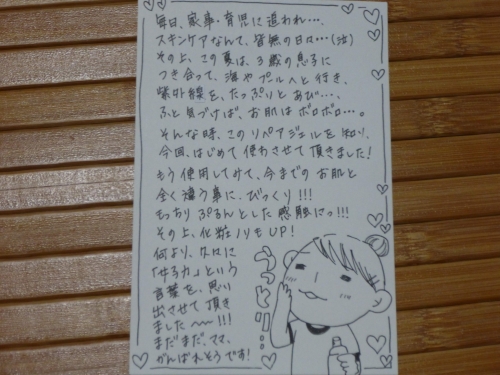 毎日、家事・育児に追われ…、
スキンケアなんて、皆無の日々…(泣)
その上、この夏は、3歳の息子に
つき合って、海やプールへと行き、
紫外線を、たっぷりとあび…、
ふと気づけば、お肌はボロボロ…。
そんな時、このリペアジェルを知り、
今回、はじめて使わさせて頂きました!
もう使用してみて、今までのお肌と
全く違う事に、びっくり!!!
もっちりぷるんとした感触にっ!!!
その上、化粧ノリもUP!
何より、久々に
「女子力」という
言葉を、思い
出させて頂き
ました〜!!!
まだまだ、ママ、
がんばれそうです!